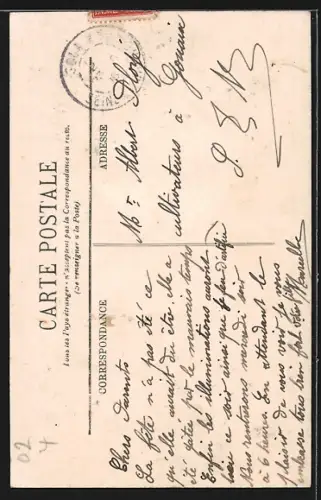 CARTE POSTALE
Tous les Pays étrangers n'acceptent pas la Correspondance au recto.
(Se renseigner à la Poste)
CORRESPONDANCE
ADRESSE
Chers Parents
La fête n'a pas été ce
qu'elle aurait du être. Elle a
été gâtée par le mauvais temps
Enfin les illuminations auront
lieu ce soir ainsi que le feu d'artifice
Nous rentrerons mercredi soir
à 6 heures. En attendant le
plaisir de vous voir je vous
embrasse tous bien fort Marcelle
Mr Albert
cultivateurs à
Gouaix
S. & M.
02
4